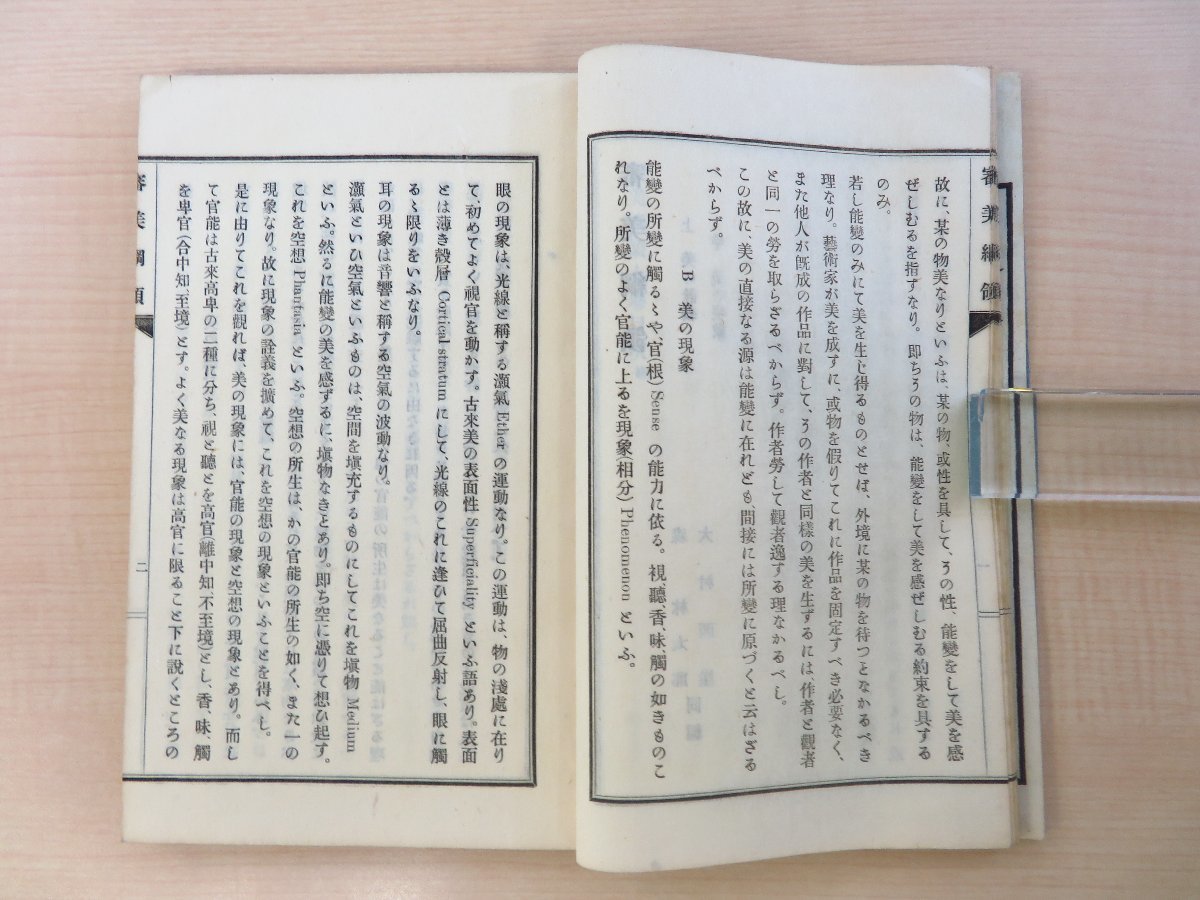 審美綱領
一
故に、某の物美なりといふは、某の物、或性を具して、その性、能變をして美を感
ぜしむるを指すなり。即ちその物は、能變をして美を感ぜしむる約束を具する
のみ。
若し能變のみにて美を生じ得るものとせば、外境に某の物を待つとなかるべき
理なり。藝術家が美を成すに、或物を假りてこれに作品を固定すべき必要なく、
また他人が旣成の作品に對して、その作者と同樣の美を生ずるには、作者と觀者
と同一の勞を取らざるべからず。作者勞して觀者逸する理なかるべし。
この故に、美の直接なる源は能變に在れども、間接には所變に原づくと云はざる
べからず。
B 美の現象
能變の所變に觸るゝや、官(根) Sense の能力に依る。視、聽、香、味、觸の如きものこ
れなり。所變のよく官能に上るを現象(相分) Phenomenon といふ。
眼の現象は、光線と稱する灝氣 Ether の運動なり。この運動は、物の淺處に在り
て、初めてよく視官を動かす。古來美の表面性 Superficiality といふ語あり。表面
とは薄き殼層 Cortical stratum にして、光線のこれに逢ひて屈曲反射し、眼に觸
るゝ限りをいふなり。
耳の現象は音響と稱する空氣の波動なり。
灝氣といひ空氣といふものは、空間を塡充するものにしてこれを塡物 Medium
といふ。然るに能變の美を感ずるに、塡物なきとあり。即ち空に憑りて想ひ起す。
これを空想 Phantasia といふ。空想の所生は、かの官能の所生の如く、また一の
現象なり。故に現象の詮義を擴めて、これを空想の現象といふことを得べし。
是に由りてこれを觀れば、美の現象には、官能の現象と空想の現象とあり。而し
て官能は古來高卑の二種に分ち、視と聽とを高官(離中知、不至境)とし、香、味、觸
を卑官(合中知、至境)とす。よく美なる現象は高官に限ること下に說くところの
審美綱領
二